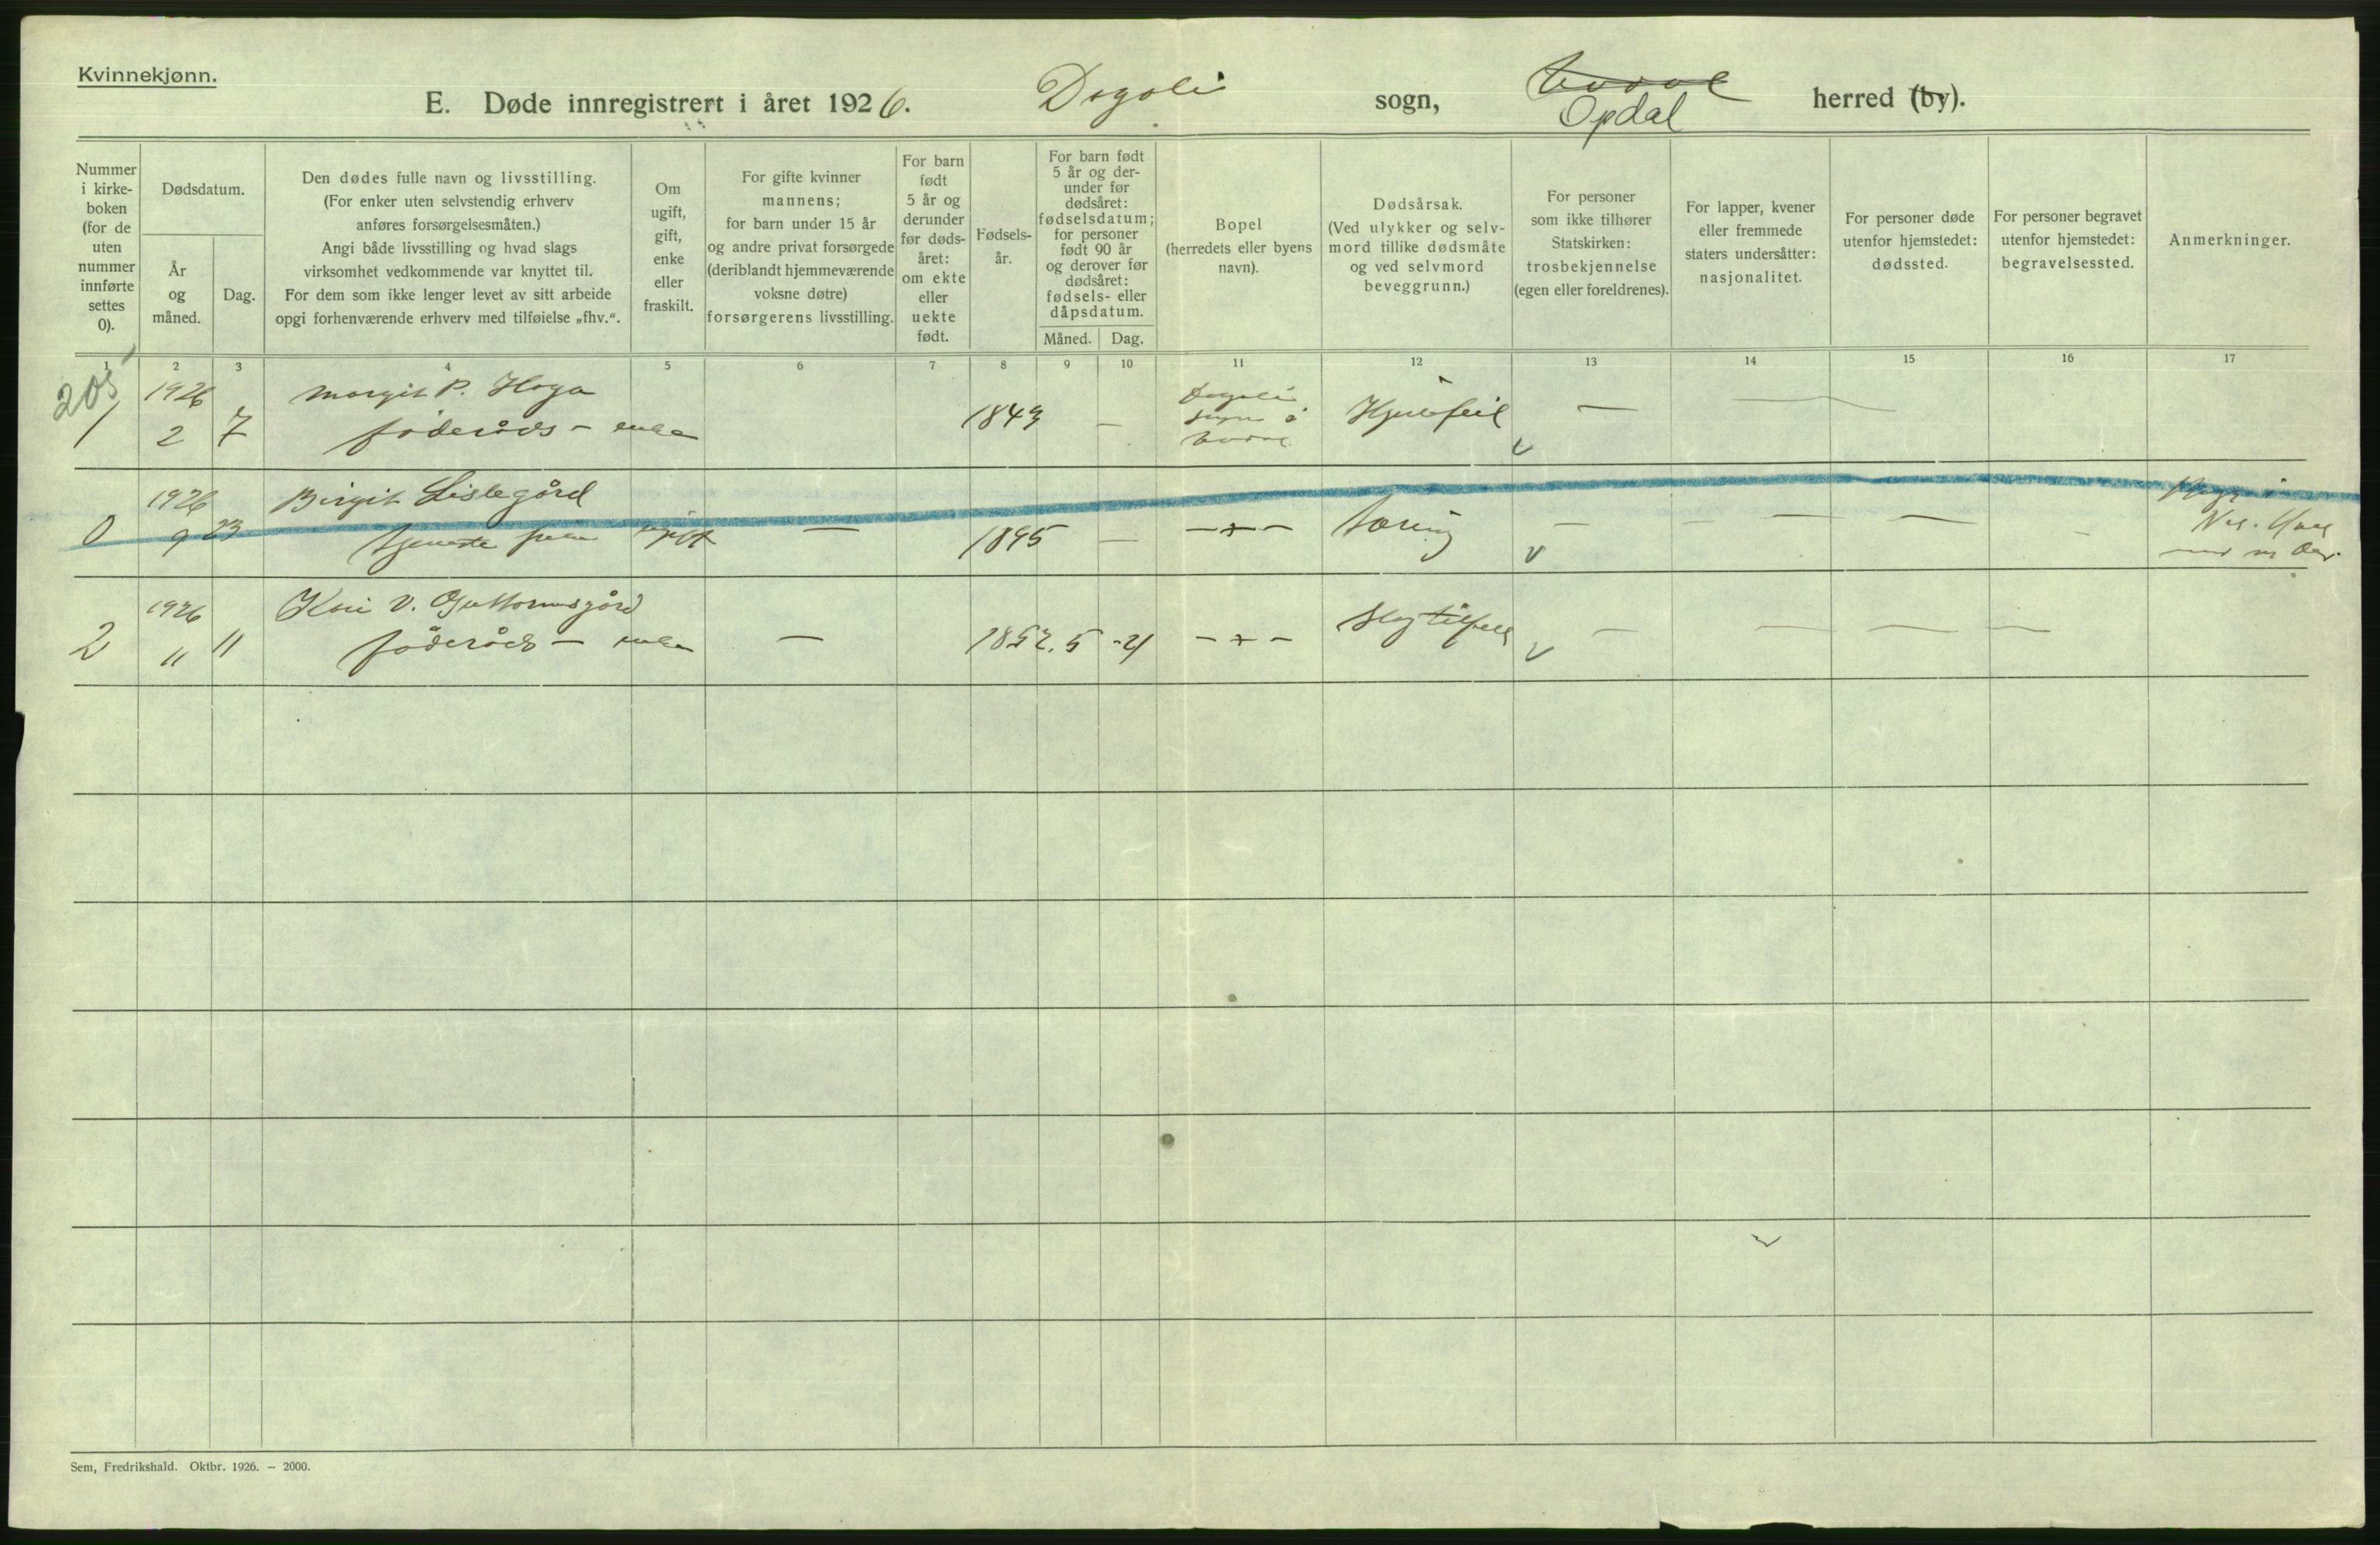 Kvinnekjønn.
E. Døde innregistrert i året 1926. Dagali sogn, Opdal herred (by).
Nummer i kirke-boken (for de uten nummer innførte settes 0).
Dødsdatum.
År og måned.
Dag.
Den dødes fulle navn og livsstilling.
(For enker uten selvstendig erhverv
anføres forsørgelsesmåten.)
Angi både livsstilling og hvad slags
virksomhet vedkommende var knyttet til.
For dem som ikke lenger levet av sitt arbeide
opgi forhenværende erhverv med tilføielse „fhv.“.
Om
ugift,
gift,
enke
eller
fraskilt.
For gifte kvinner
mannens;
for barn under 15 år
og andre privat forsørgede
(deriblandt hjemmeværende
voksne døtre)
forsørgerens livsstilling.
For barn
født
5 år og
derunder
før døds-
året:
om ekte
eller
uekte
født.
Fødsels-
år.
For barn født
5 år og der-
under før
dødsåret:
fødselsdatum;
for personer
født 90 år
og derover før
dødsåret:
fødsels- eller
dåpsdatum.
Måned. Dag.
Bopel
(herredets eller byens
navn).
Dødsårsak.
(Ved ulykker og selv-
mord tillike dødsmåte
og ved selvmord
beveggrunn.)
For personer
som ikke tilhører
Statskirken:
trosbekjennelse
(egen eller foreldrenes).
For lapper, kvener
eller fremmede
staters undersåtter:
nasjonalitet.
For personer døde
utenfor hjemstedet:
dødssted.
For personer begravet
utenfor hjemstedet:
begravelsessted.
Anmerkninger.
1 2 3 4 5 6 7 8 9 10 11 12 13 14 15 16 17
205
1926 Margit P. Haga Dagali
1 2 7 föderåds - enke 1843 — sogn i Hjertefeil —
1926 Birgit Lislegård
0 9 23 tjeneste ugift — 1895 — - „ - Tæring — — —
1926 Kari V. Guttormsgård
2 11 11 föderåds - enke — 1852. 5 - 21 - „ - Slagtilfelle — — — —
Sem, Fredrikshald. Oktbr. 1926. — 2000.